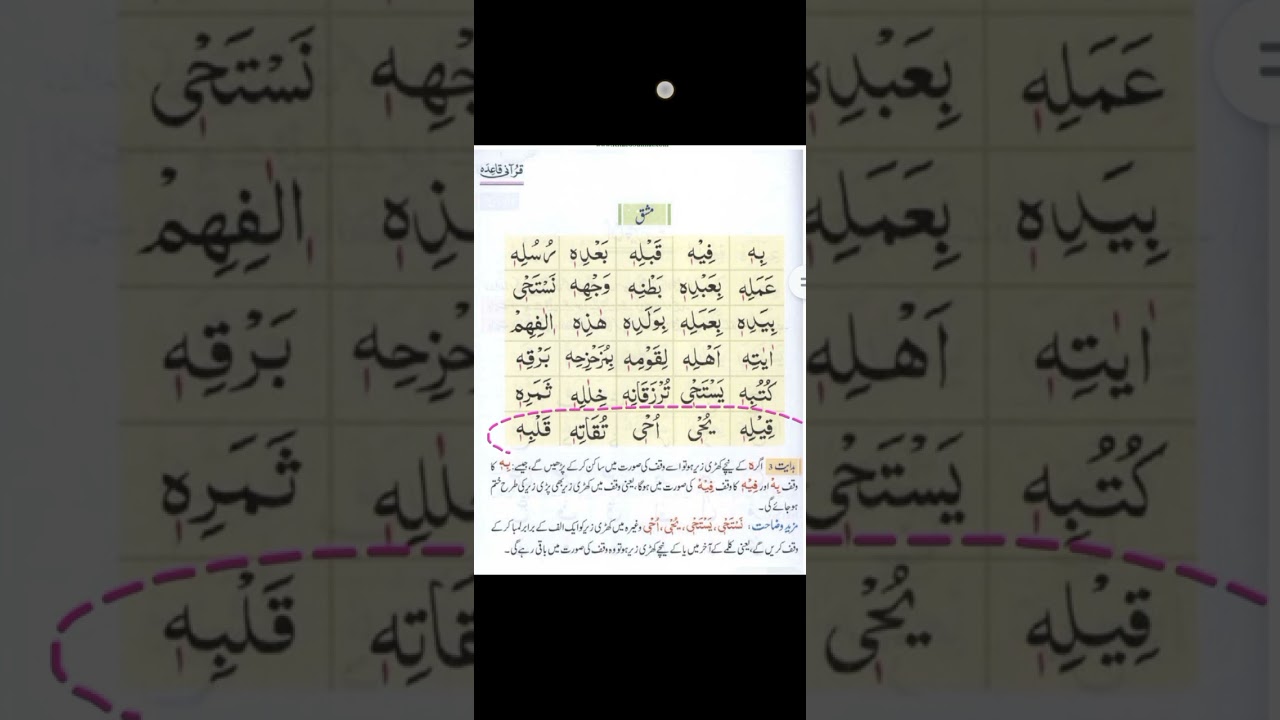 قرآنی قاعدہ
مشق
بِهٖ فِيْهِ قَبْلِهٖ بَعْدِهٖ رُسُلِهٖ
عَمَلِهٖ بِعَبْدِهٖ بَطْنِهٖ وَجْهِهٖ نَسْتَحْیٖ
بِيَدِهٖ بِعَمَلِهٖ بِوَلَدِهٖ هٰذِهٖ اٖلٰفِهِمْ
اٰيٰتِهٖ اَهْلِهٖ لِقَوْمِهٖ بِمُزَحْزِحِهٖ بَرْقِهٖ
كُتُبِهٖ يَسْتَحْیٖ تُرْزَقَانِهٖ خِلٰلِهٖ ثَمَرِهٖ
قِيْلِهٖ يُحْیٖ اُحْیٖ تُقَاتِهٖ قَلْبِهٖ
ہدایت 3 اگر ہ کے نیچے کھڑی زیر ہو تو اسے وقف کی صورت میں ساکن کر کے پڑھیں گے، جیسے: بِهٖ کا
وقف بِهْ اور فِيْهٖ کا وقف فِيْهْ کی صورت میں ہوگا، یعنی وقف میں کھڑی زیر بھی پڑی زیر کی طرح ختم
ہو جائے گی۔
مزید وضاحت: نَسْتَحْیٖ، يَسْتَحْیٖ، يُحْیٖ، اُحْیٖ وغیرہ میں کھڑی زیر کو ایک الف کے برابر لمبا کر کے
وقف کریں گے، یعنی کلمے کے آخر میں یا کے نیچے کھڑی زیر ہو تو وہ وقف کی صورت میں باقی رہے گی۔